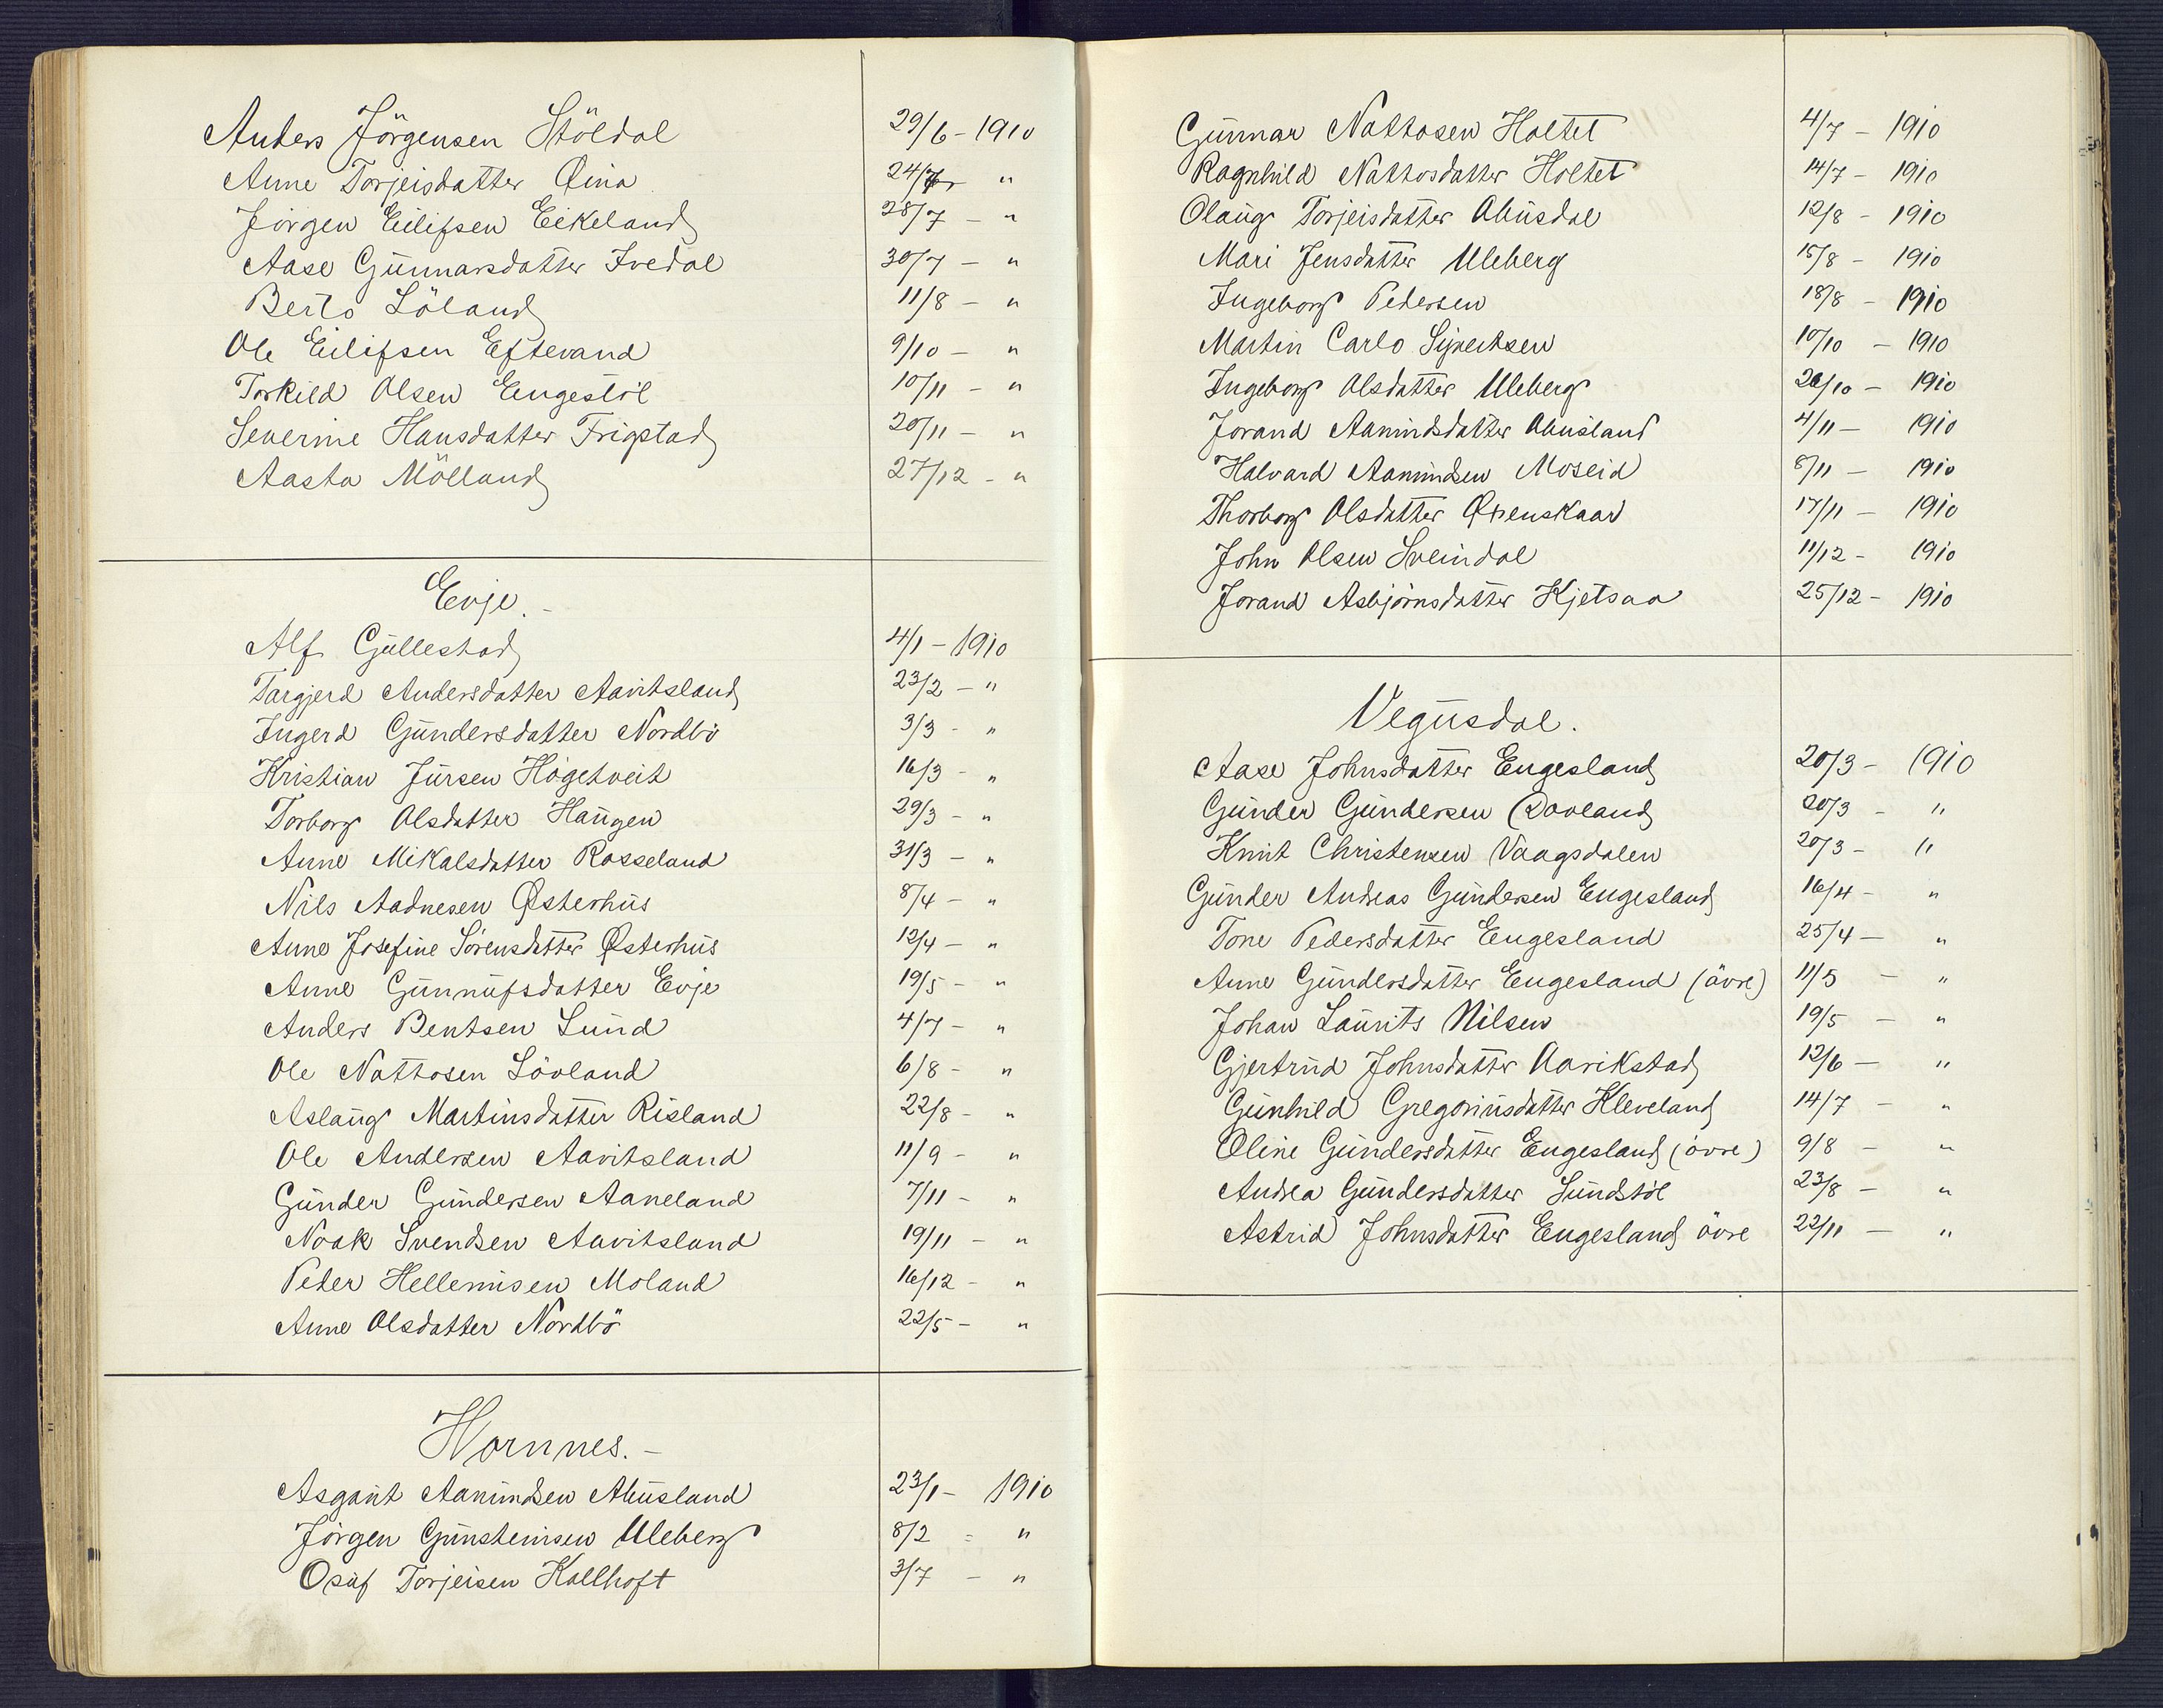 Anders Jörgensen Stöldal 29/6 - 1910
Anne Torjeisdatter Øina 24/7 - "
Jörgen Eilifsen Eikeland 28/7 - "
Aase Gunnarsdatter Ivedal 30/7 - "
Berto Löland 11/8 - "
Ole Eilifsen Eftevand 9/10 - "
Torkild Olsen Engestöl 10/11 - "
Severine Hansdatter Frigstad 20/11 - "
Aasta Mölland 27/12 - "
Evje. -
Alf Gulleshad 4/1 - 1910
Targjerd Andersdatter Aavitsland 23/2 - "
Ingerd Gundersdatter Nordbö 3/3 - "
Kristian Jürsen Högetveit 16/3 - "
Torborg Olsdatter Haugen 29/3 - "
Anne Mikalsdatter Rosseland 31/3 - "
Nils Aadnesen Østerhus 8/4 - "
Anne Josefine Sörensdatter Østerhus 12/4 - "
Anne Gunnufsdatter Evje 19/5 - "
Anders Bentsen Lund 4/7 - "
Ole Nattosen Lövland 6/8 - "
Aslaug Martinsdatter Risland 22/8 - "
Ole Andersen Aavitsland 11/9 - "
Gunder Gundersen Aaneland 7/11 - "
Noak Svendsen Aavitsland 19/11 - "
Peder Helleniusen Moland 16/12 - "
Anne Olsdatter Nordbö 22/5 - "
Hornnes. -
Asgaut Aanundsen Abusland 23/1 - 1910
Jörgen Gunsteinsen Uleberg 8/2 = "
Osuf Torjeisen Kallhoft 3/7 - "
Gunnar Nattosen Holtet 4/7 - 1910
Ragnhild Nattosdatter Holtet 14/7 - 1910
Olaug Torjeisdatter Abusdal 12/8 - 1910
Mari Jensdatter Uleberg 15/8 - 1910
Ingeborg Pedersen 18/8 - 1910
Martin Carlo Sijvertsen 10/10 - 1910
Ingeborg Olsdatter Uleberg 26/10 - 1910
Jorand Aanundsdatter Abusland 4/11 - 1910
Halvard Aanundsen Moseid 8/11 - 1910
Thorborg Olsdatter Øvenskaar 17/11 - 1910
John Olsen Sveindal 11/12 - 1910
Jorand Asbjörnsdatter Kjetsaa 25/12 - 1910
Vegusdal.
Aase Johnsdatter Engesland 20/3 - 1910
Gunder Gundersen Rovland 20/3 - "
Knut Christensen Vaagsdalen 20/3 - "
Gunder Andreas Gundersen Engesland 16/4 - "
Tone Pedersdatter Engesland 25/4 - "
Anne Gundersdatter Engesland (övre) 11/5 - "
Johan Laurits Nilsen 19/5 - "
Gjertrud Johnsdatter Aavikstad 12/6 - "
Gunhild Gregoriusdatter Kleveland 14/7 - "
Oline Gundersdatter Engesland (övre) 9/8 - "
Andrea Gundersdatter Sundstöl 23/8 - "
Astrid Johnsdatter Engesland övre 22/11 - "